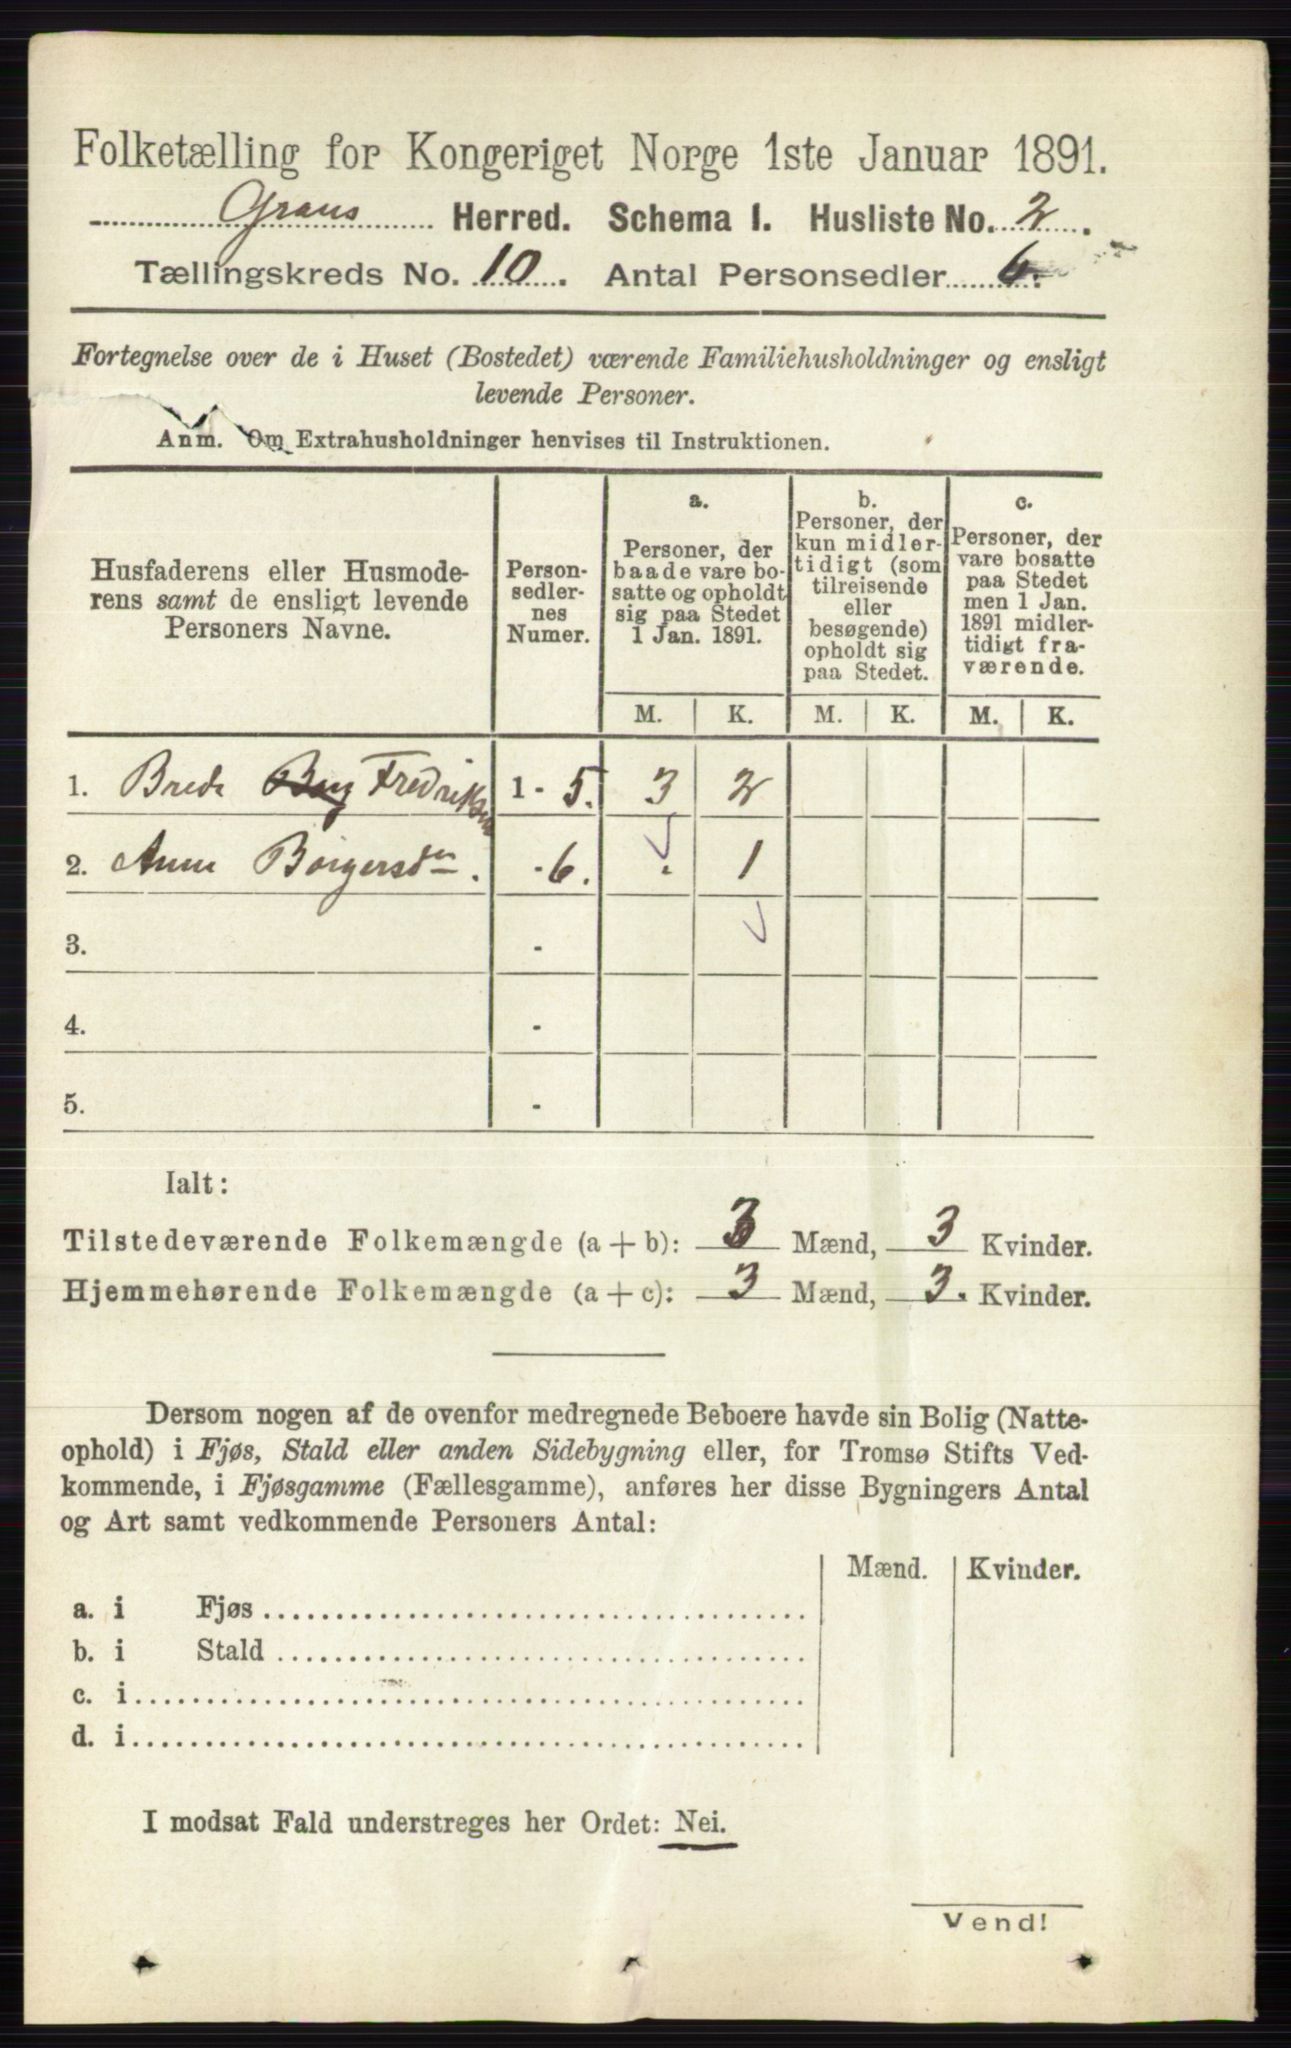 Folketælling for Kongeriget Norge 1ste Januar 1891.
Grans Herred. Schema I. Husliste No. 2.
Tællingskreds No. 10. Antal Personsedler 6.
Fortegnelse over de i Huset (Bostedet) værende Familiehusholdninger og ensligt
levende Personer.
Anm. Om Extrahusholdninger henvises til Instruktionen.
Husfaderens eller Husmode-
rens samt de ensligt levende
Personers Navne.
Person-
sedler-
nes
Numer.
a.
Personer, der
baade vare bo-
satte og opholdt
sig paa Stedet
1 Jan. 1891.
b.
Personer, der
kun midler-
tidigt (som
tilreisende
eller
besøgende)
opholdt sig
paa Stedet.
c.
Personer, der
vare bosatte
paa Stedet
men 1 Jan.
1891 midler-
tidigt fra-
værende.
M. K. M. K. M. K.
1. Brede Fredriksen 1 - 5. 3 2
2. Anne Børgersdtr. - 6. . 1
3. -
4. -
5. -
Ialt:
Tilstedeværende Folkemængde (a + b): 3 Mænd, 3 Kvinder.
Hjemmehørende Folkemængde (a + c): 3 Mænd, 3. Kvinder.
Dersom nogen af de ovenfor medregnede Beboere havde sin Bolig (Natte-
ophold) i Fjøs, Stald eller anden Sidebygning eller, for Tromsø Stifts Ved-
kommende, i Fjøsgamme (Fællesgamme), anføres her disse Bygningers Antal
og Art samt vedkommende Personers Antal:
Mænd. Kvinder.
a. i Fjøs
b. i Stald
c. i
d. i
I modsat Fald understreges her Ordet: Nei.
Vend!